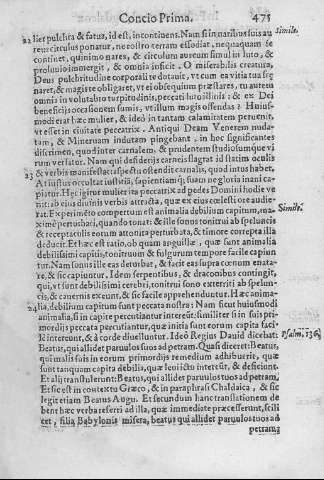 Concio Prima. 475
22 lier pulchra & fatua, id est, incontinens. Nam si in naribus suis au Simile.
reus circulus ponatur, ne eo sterco terram effodiat, nequaquam se
continet, quinimo nares, & circulum aureum simul in luto, &
proluuio immergit, & omnia inficit. O miserabilis creatura,
Deus pulchritudine corporali te dotauit, vt eum ea vitia tua sig
naret, & magis te obligaret, vt ei obsequium præstares, tu autem
omnia in volutabro turpitudinis, peccati luto illinis: & ex Dei
beneficijs occasionem sumis, vt illum magis offendas? Huius-
modi erat hæc mulier, & ideo in tantam calamitatem peruenit,
vt esset in ciuitate peccatrix. Antiqui Deam Venerem nuda-
tam, & Mineruam indutam pingebant, in hoc significantes
discrimen, quod inter carnalem, & prudentem studiosumque vi
rum versatur. Nam qui desiderijs carneis flagrat id statim oculis
23 & verbis manifestat: aspectu ostendit carnalis, quod intus habet.
At iustus occultat iustitiã, sapientiamq; suam ne gloria inani ca-
piatur. Hęc igitur mulier ita peccatrix ad pedes Domini hodie ve
nit: ab eius diuinis verbis attracta, quæ ex eius cœlesti ore audie-
rat. Experimẽto compertum est animalia debilium capitum, ma Simile.
ximè perturbari, quando tonat: & ille sonus tonitrui ab speluncis
& receptaculis earum attonita perturbata, & timore correpta illa
deducit. Et hæc est ratio, ob quam anguillæ, quæ sunt animalia
debilissimi capitis, tonitruum & fulgurum tempore facile capiun
tur. Nam sonus ille eas deturbat, & facit eas supra cœnum enata-
re, & sic capiuntur. Idem serpentibus, & draconibus contingit,
qui, vt sunt debilissimi cerebri, tonitrui sono exterriti ab spelun-
cis, & cauernis exeunt, & sic facile apprehenduntur. Hæc anima-
24 lia, debilium capitum sunt peccata nostra: Nam sicut huiusmodi
animalia, si in capite percutiantur intereũt: similiter si in suis pri-
mordijs peccata percutiantur, quæ initia sunt eorum capita faci-
lè intereunt, & à corde diuelluntur. Ideò Regius Dauid dicebat: Psalm. 136.
Beatus, qui allidet paruulos suos ad petram. Quasi diceret: Beatus,
qui malis suis in eorum primordijs remedium adhibuerit, quæ
sunt tanquam capita debilia, quæ leui ictu intereũt, & deficiunt.
Et alij transtulerunt: Beatus, qui allidet paruulos tuos ad petram,
Et sic est in contextu Græco, & in paraphrasi Chaldaica, & sic
legit etiam Beatus Augu. Et secundum hanc translationem de
bent hæc verba referri ad illa, quæ immediate præcesserunt, scili
cet, filia Babylonis misera, beatus qui allidet paruulos tuos ad
petram: